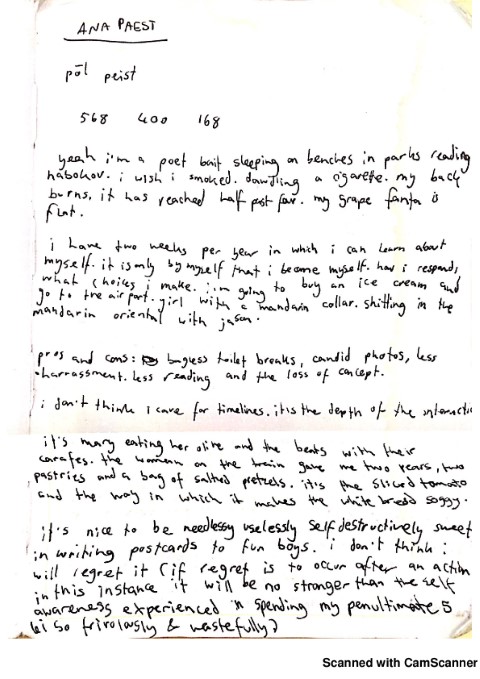 ANA PAEST
pōl peist
568 400 168
yeah i'm a poet bait sleeping on benches in parks reading
nabokov. i wish i smoked. dawdling a cigarette. my back
burns. it has reached half past four. my grape fanta is
flat.
i have two weeks per year in which i can learn about
myself. it is only by myself that i become myself. how i respond,
what choices i make. i'm going to buy an ice cream and
go to the airport. girl with a mandarin collar. shitting in the
mandarin oriental with jason.
pros and cons: bagless toilet breaks, candid photos, less
harrassment. less reading and the loss of concept.
i don't think i care for timelines. it is the depth of the interactio
it's mary eating her olive and the beats with their
carafes. the women on the train gave me two pears, two
pastries and a bag of salted pretzels. it's the sliced tomato
and the way in which it makes the white bread soggy.
it's nice to be needlessy uselessly self destructively sweet
in writing postcards to fun boys. i don't think i
will regret it (if regret is to occur after an action
in this instance it will be no stronger than the self
awareness experienced in spending my penultimate 5
lei so frivolously & wastefully)
Scanned with CamScanner